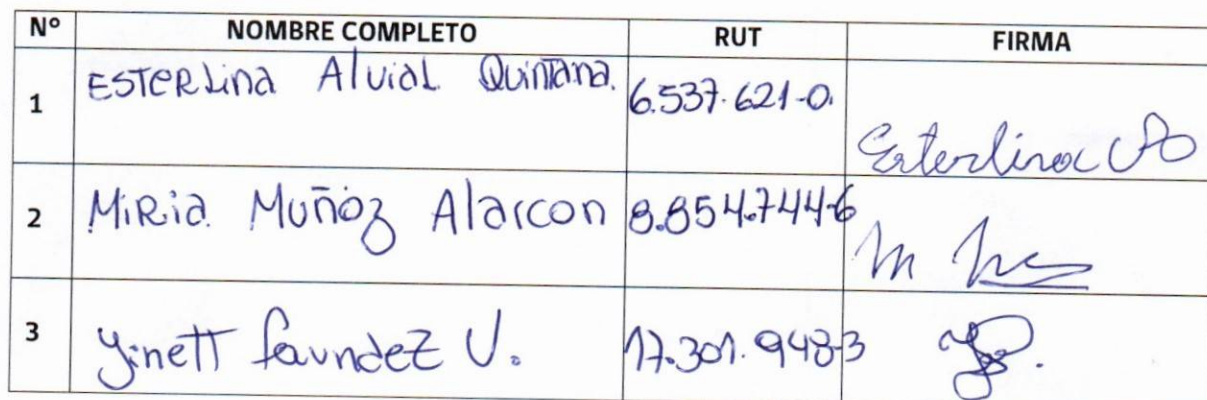 N° NOMBRE COMPLETO RUT FIRMA
1 ESTERLina Alvial Quintana. 6.537.621-0. Esterlina
2 MiRia Muñoz Alarcon 8.854.744-6
3 Yinett faundez V. 17.301.948-3